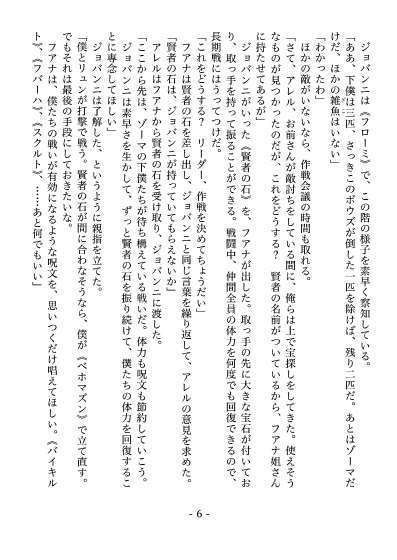 ジョバンニは《フローミ》で、この階の様子を素早く察知している。
「ああ、下僕は三匹、さっきこのボウズが倒した一匹を除けば、残り二匹だ。あとはゾーマだ
けだ、ほかの雑魚はいない」
「わかったわ」
ほかの敵がいないなら、作戦会議の時間も取れる。
「さて、アレル、お前さんが敵討ちをしている間に、俺らは上で宝探しをしてきた。使えそう
なものが見つかったのだが、これをどうする？　賢者の名前がついているから、フアナ姐さん
に持たせてあるが」
ジョバンニがいった《賢者の石》を、フアナが出した。取っ手の先に大きな宝石が付いてお
り、取っ手を持って振ることができる。戦闘中、仲間全員の体力を何度でも回復できるので、
長期戦にはうってつけだ。
「これをどうする？　リーダー、作戦を決めてちょうだい」
フアナは賢者の石を差し出し、ジョバンニと同じ言葉を繰り返して、アレルの意見を求めた。
「賢者の石は、ジョバンニが持っていてもらえないか」
アレルはフアナから賢者の石を受け取り、ジョバンニに渡した。
「ここから先は、ゾーマの下僕たちが待ち構えている戦いだ。体力も呪文も節約していこう。
ジョバンニは素早さを生かして、ずっと賢者の石を振り続けて、僕たちの体力を回復するこ
とに専念してほしい」
ジョバンニは了解した、というように親指を立てた。
「僕とリュンが打撃で戦う。賢者の石が間に合わなそうなら、僕が《ベホマズン》で立て直す。
でもそれは最後の手段にしておきたいな。
フアナは、僕たちの戦いが有効になるような呪文を、思いつくだけ唱えてほしい。《バイキル
ト》、《フバーハ》、《スクルト》、……あと何でもいい」
- 6 -